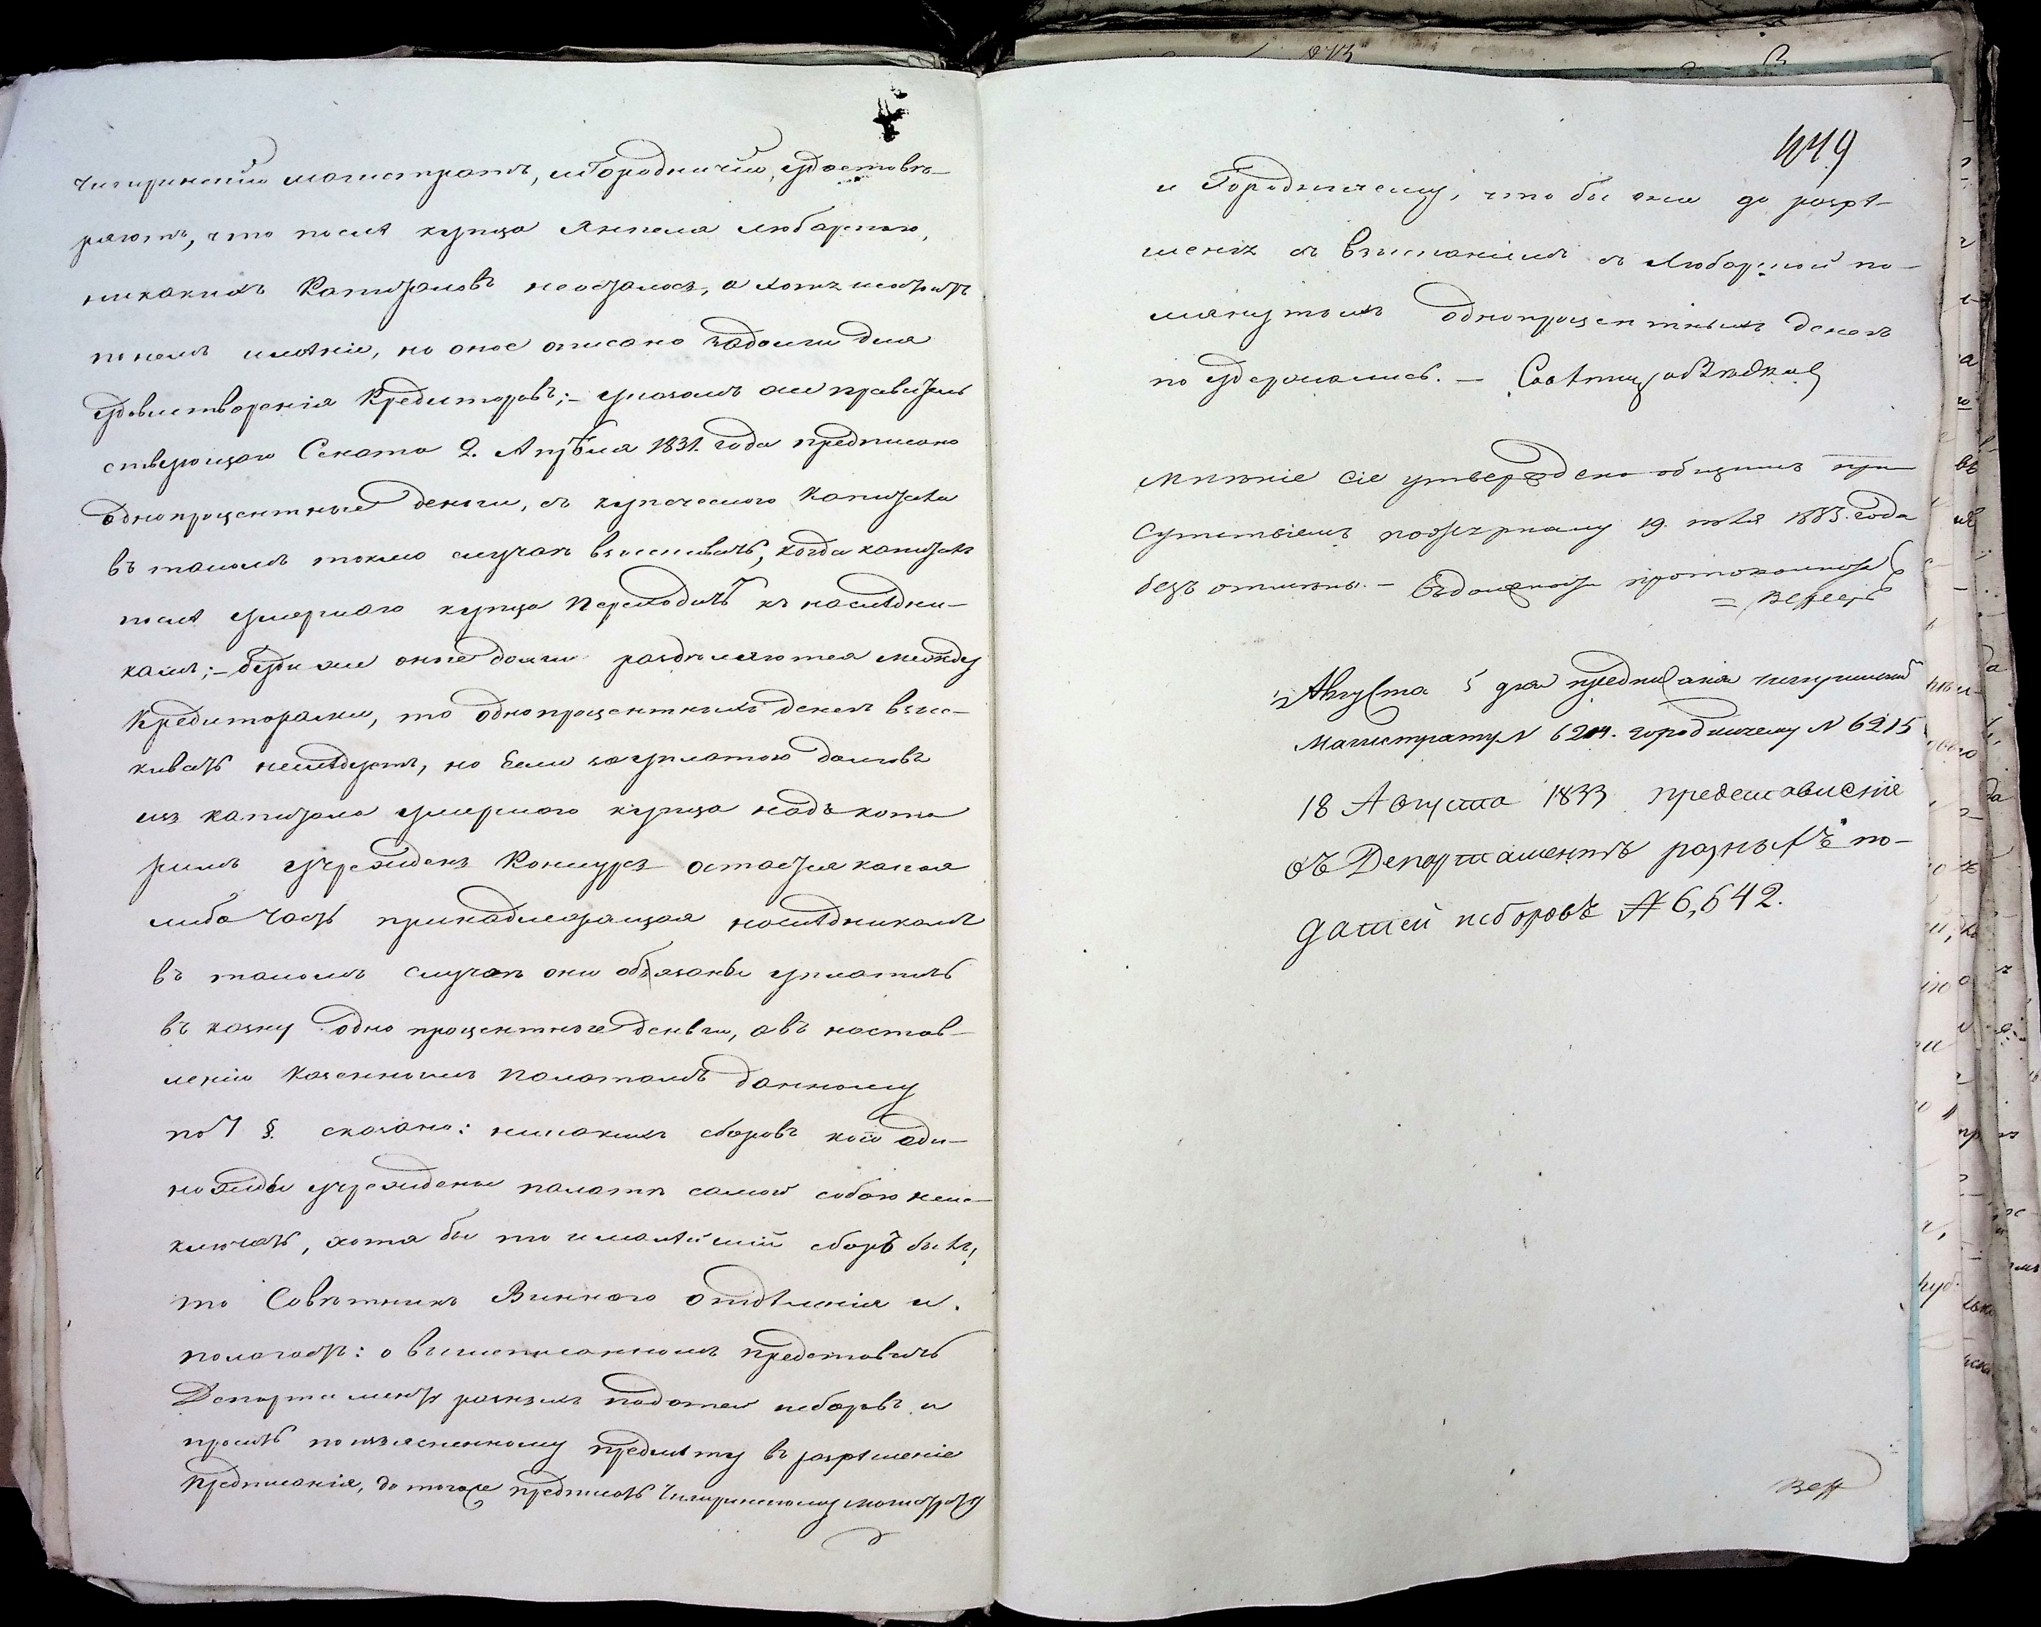 Чигиринский магистратъ, и Городничий, удостовѣ-
ряютъ, что послѣ купца Янкеля Любарскаго,
никакихъ Капиталовъ неосталось, а хотя исостоитъ
по немъ имѣніе, но оное описано задолги для
удовлетворенія Кредиторовъ; – указомъ же правитель
ствующаго Сената 2. Апрѣля 1831. года предписано
однопроцентные деньги, съ купеческаго Капитала
въ такомъ токмо случаѣ взыскивать, когда капиталъ
послѣ умершаго купца Переходитъ къ наслѣдни-
камъ; – будеже оные долги раздѣляются между
Кредиторами, то однопроцентныхъ денегъ взыс-
кивать неслѣдуетъ, но Если зауплатою долговъ
изъ капитала умершаго купца надъ кото
рымъ учрежденъ Конкурсъ остается какая
либо часть принадлежащая наслѣдникамъ
въ такомъ случаѣ они обязаны уплатить
въ казну одно процентные деньги, а въ настав-
леніи Казеннымъ Палатамъ данному
по 7 §. сказано: никакихъ сборовъ кои еди-
ножды учреждены палатѣ самой собою неис-
ключать, хотя бы то и малѣйшій сборъ былъ,
то Совѣтникъ Виннаго отдѣленія и.
полагаетъ: о вышеписанномъ представить
Департаменту разныхъ податей исборовъ и
просить поизъясненному предмѣту въ разрѣшеніе
Предписанія, до того же предписать Чигиринскому магистрату
449
и Городничему, что бы они до разрѣ-
шенія съ взысканіемъ съ Любарской по-
мянутыхъ однопроцентныхъ денегъ
по удержались. – Совѣтникъ
Мнѣніе сіе утверждено общимъ при
сутствіемъ пожурналу 19. Іюля 1833. года
безъ отмѣны. –
Августа 5 дня предписанія чигиринскому
Магистрату N 6214. городничему N 6215
18 Августа 1833 представленіе
въ Департаментъ разныхъ по-
датей исборовъ № 6,642.